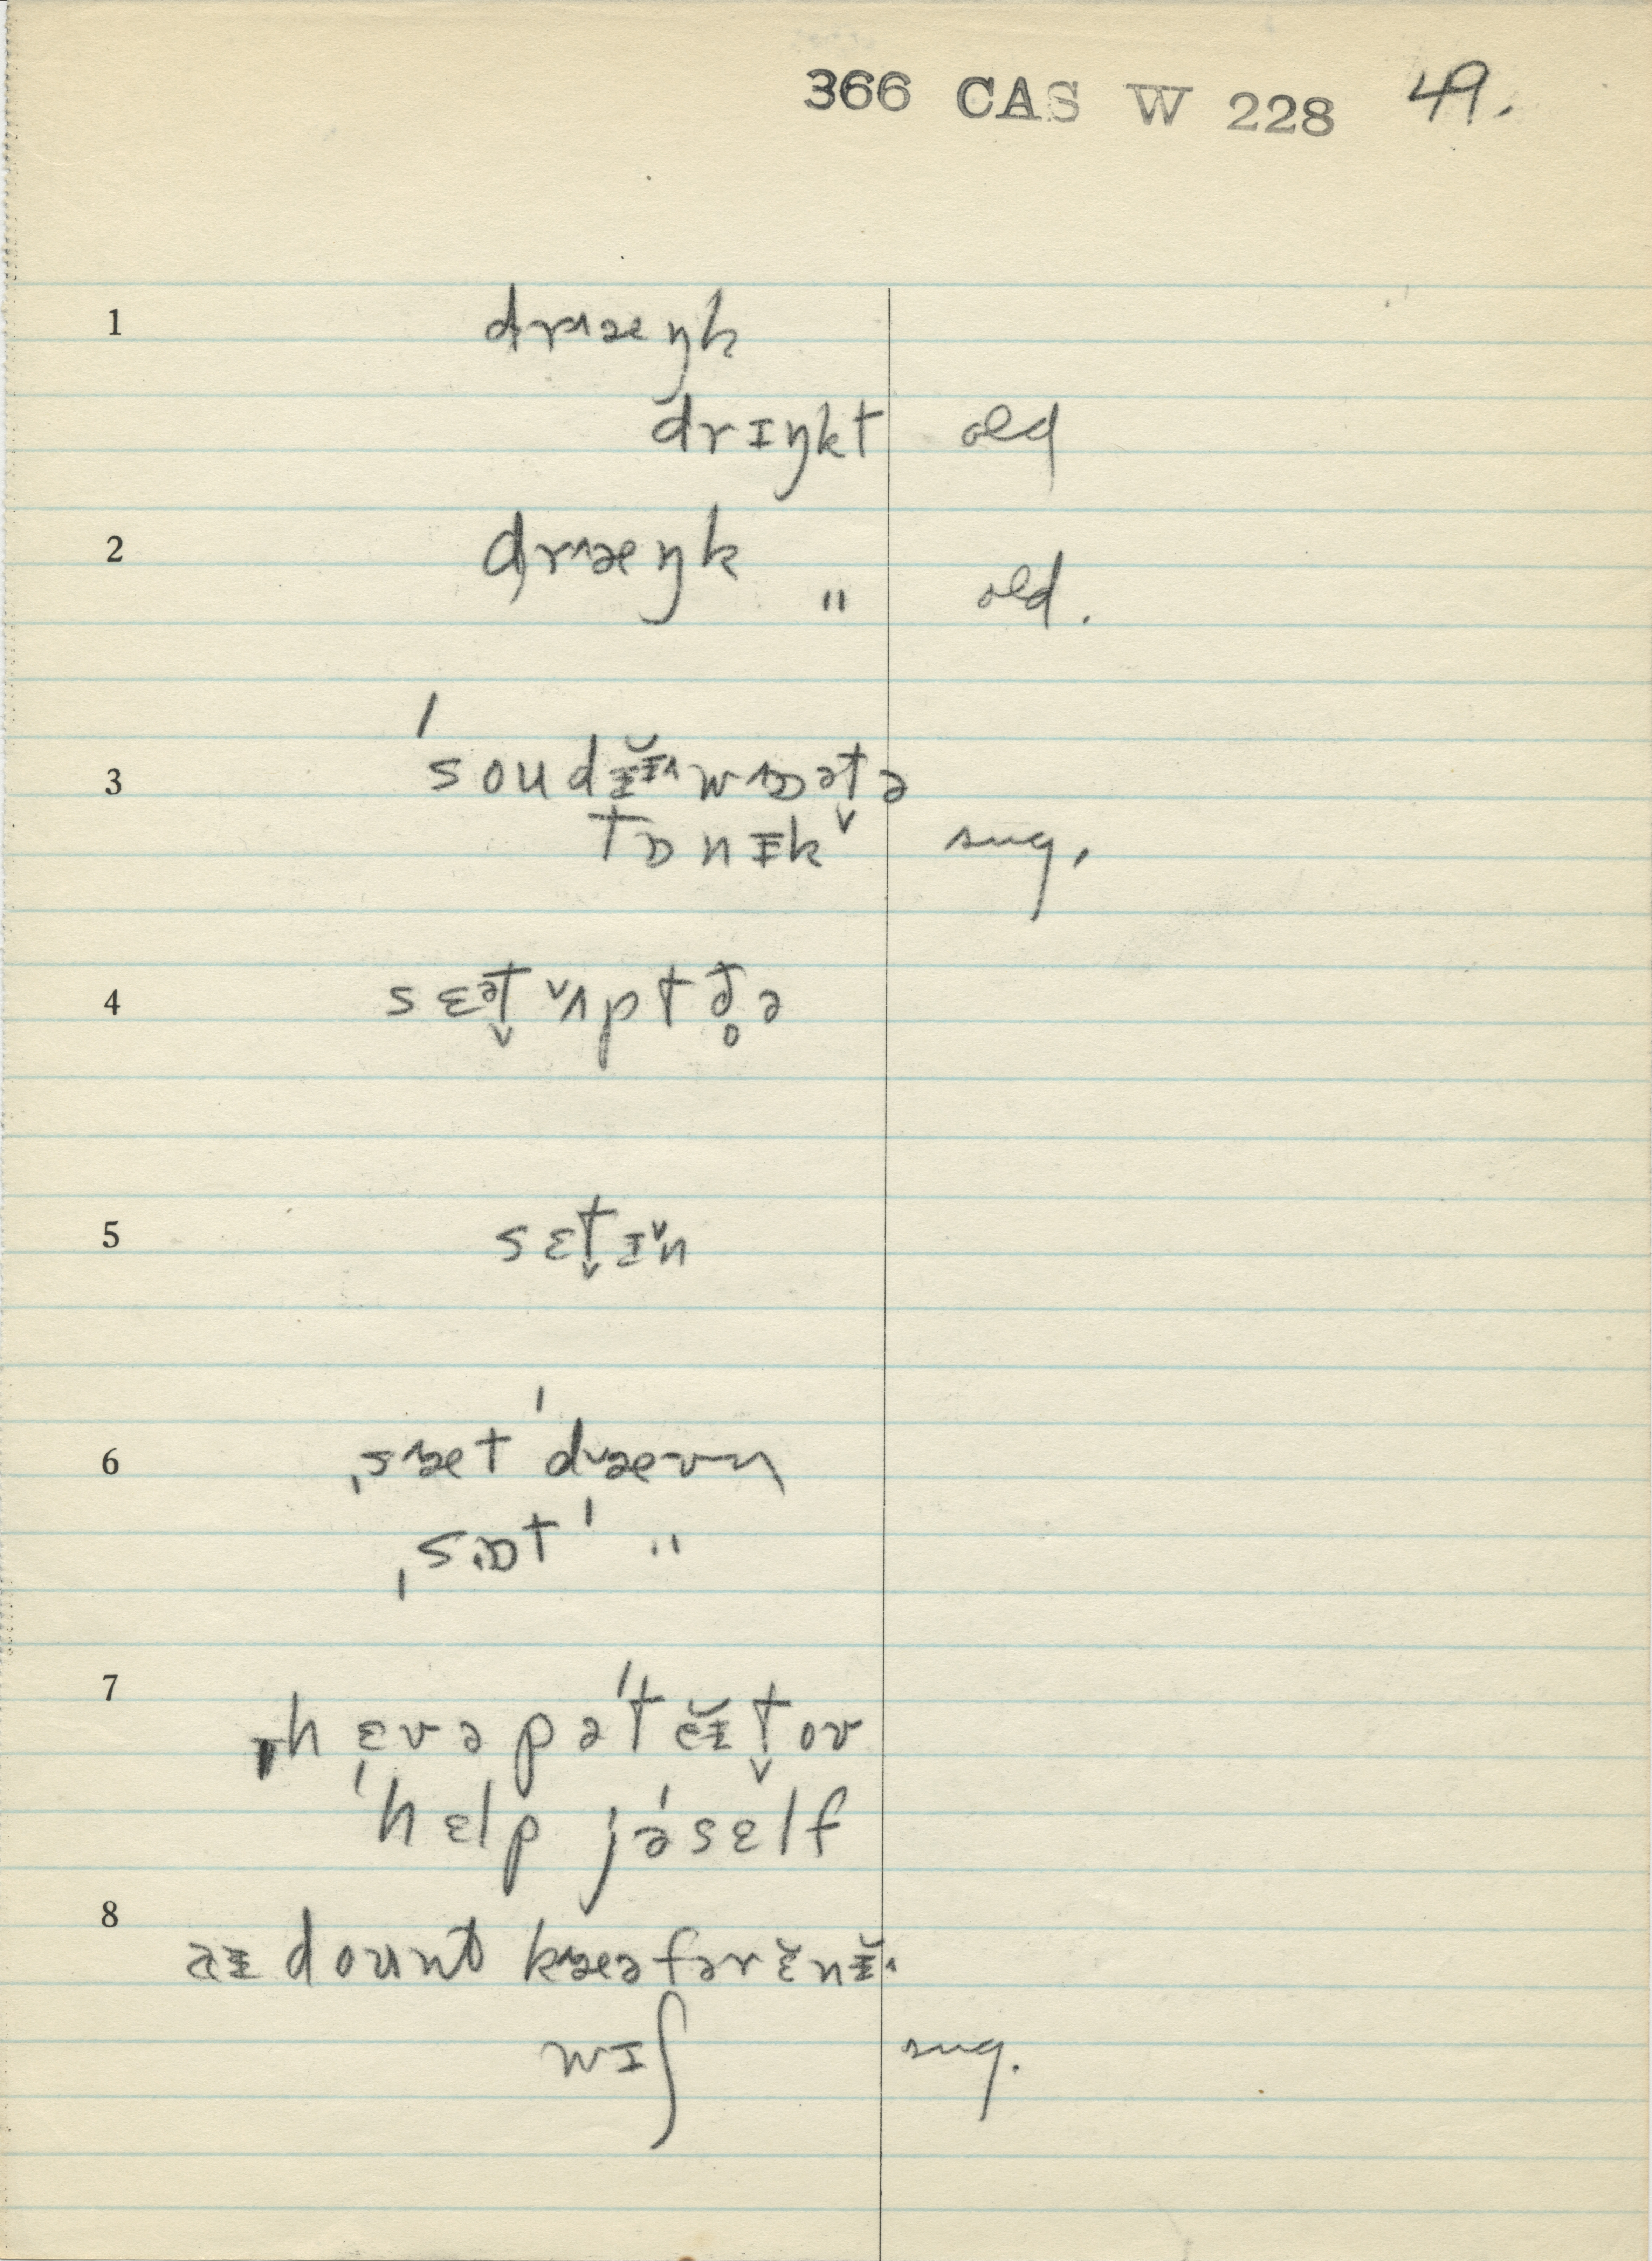 366 CAS W 228 49.
1 drʌæŋk
drɪŋkt old
2 drʌæŋk
" old.
3 ˈsoudᵻ̆ᵻ˄ wɒət̬ə
tɒnᵻk sug.
4 sɛət̬ ʌpt ð̥ə
5 sɛt̬ ɪn
6 ˌsæt ˈdæʊn
ˌsɒt ˈ "
7 hɛv ə pəˈtĕᵻt̬ oʊ
ˈhɛlp jəˈsɛlf
8 aᵻ dount kæə fər ɛ̆nᵻ̆˄
wɪʃ sug.